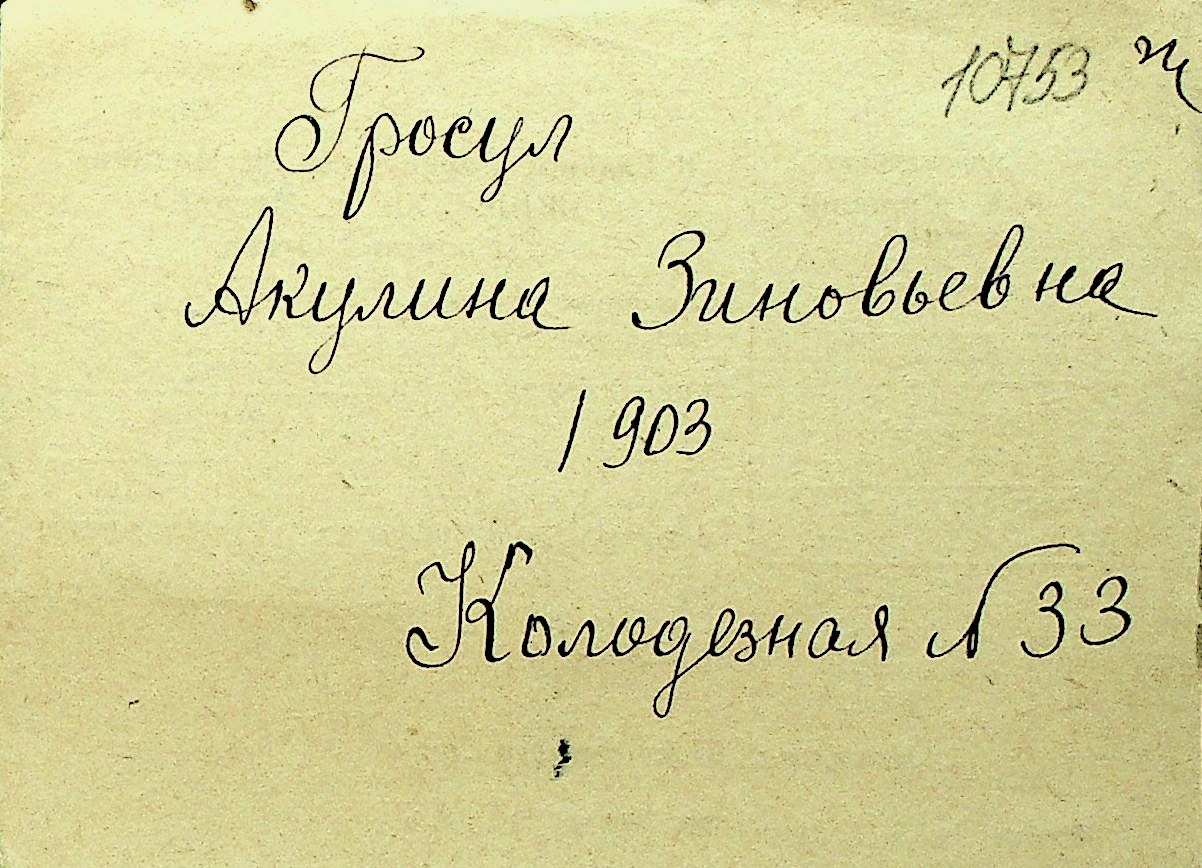 10753
Гросул
Акулина Зиновьевна
1903
Колодезная N 33